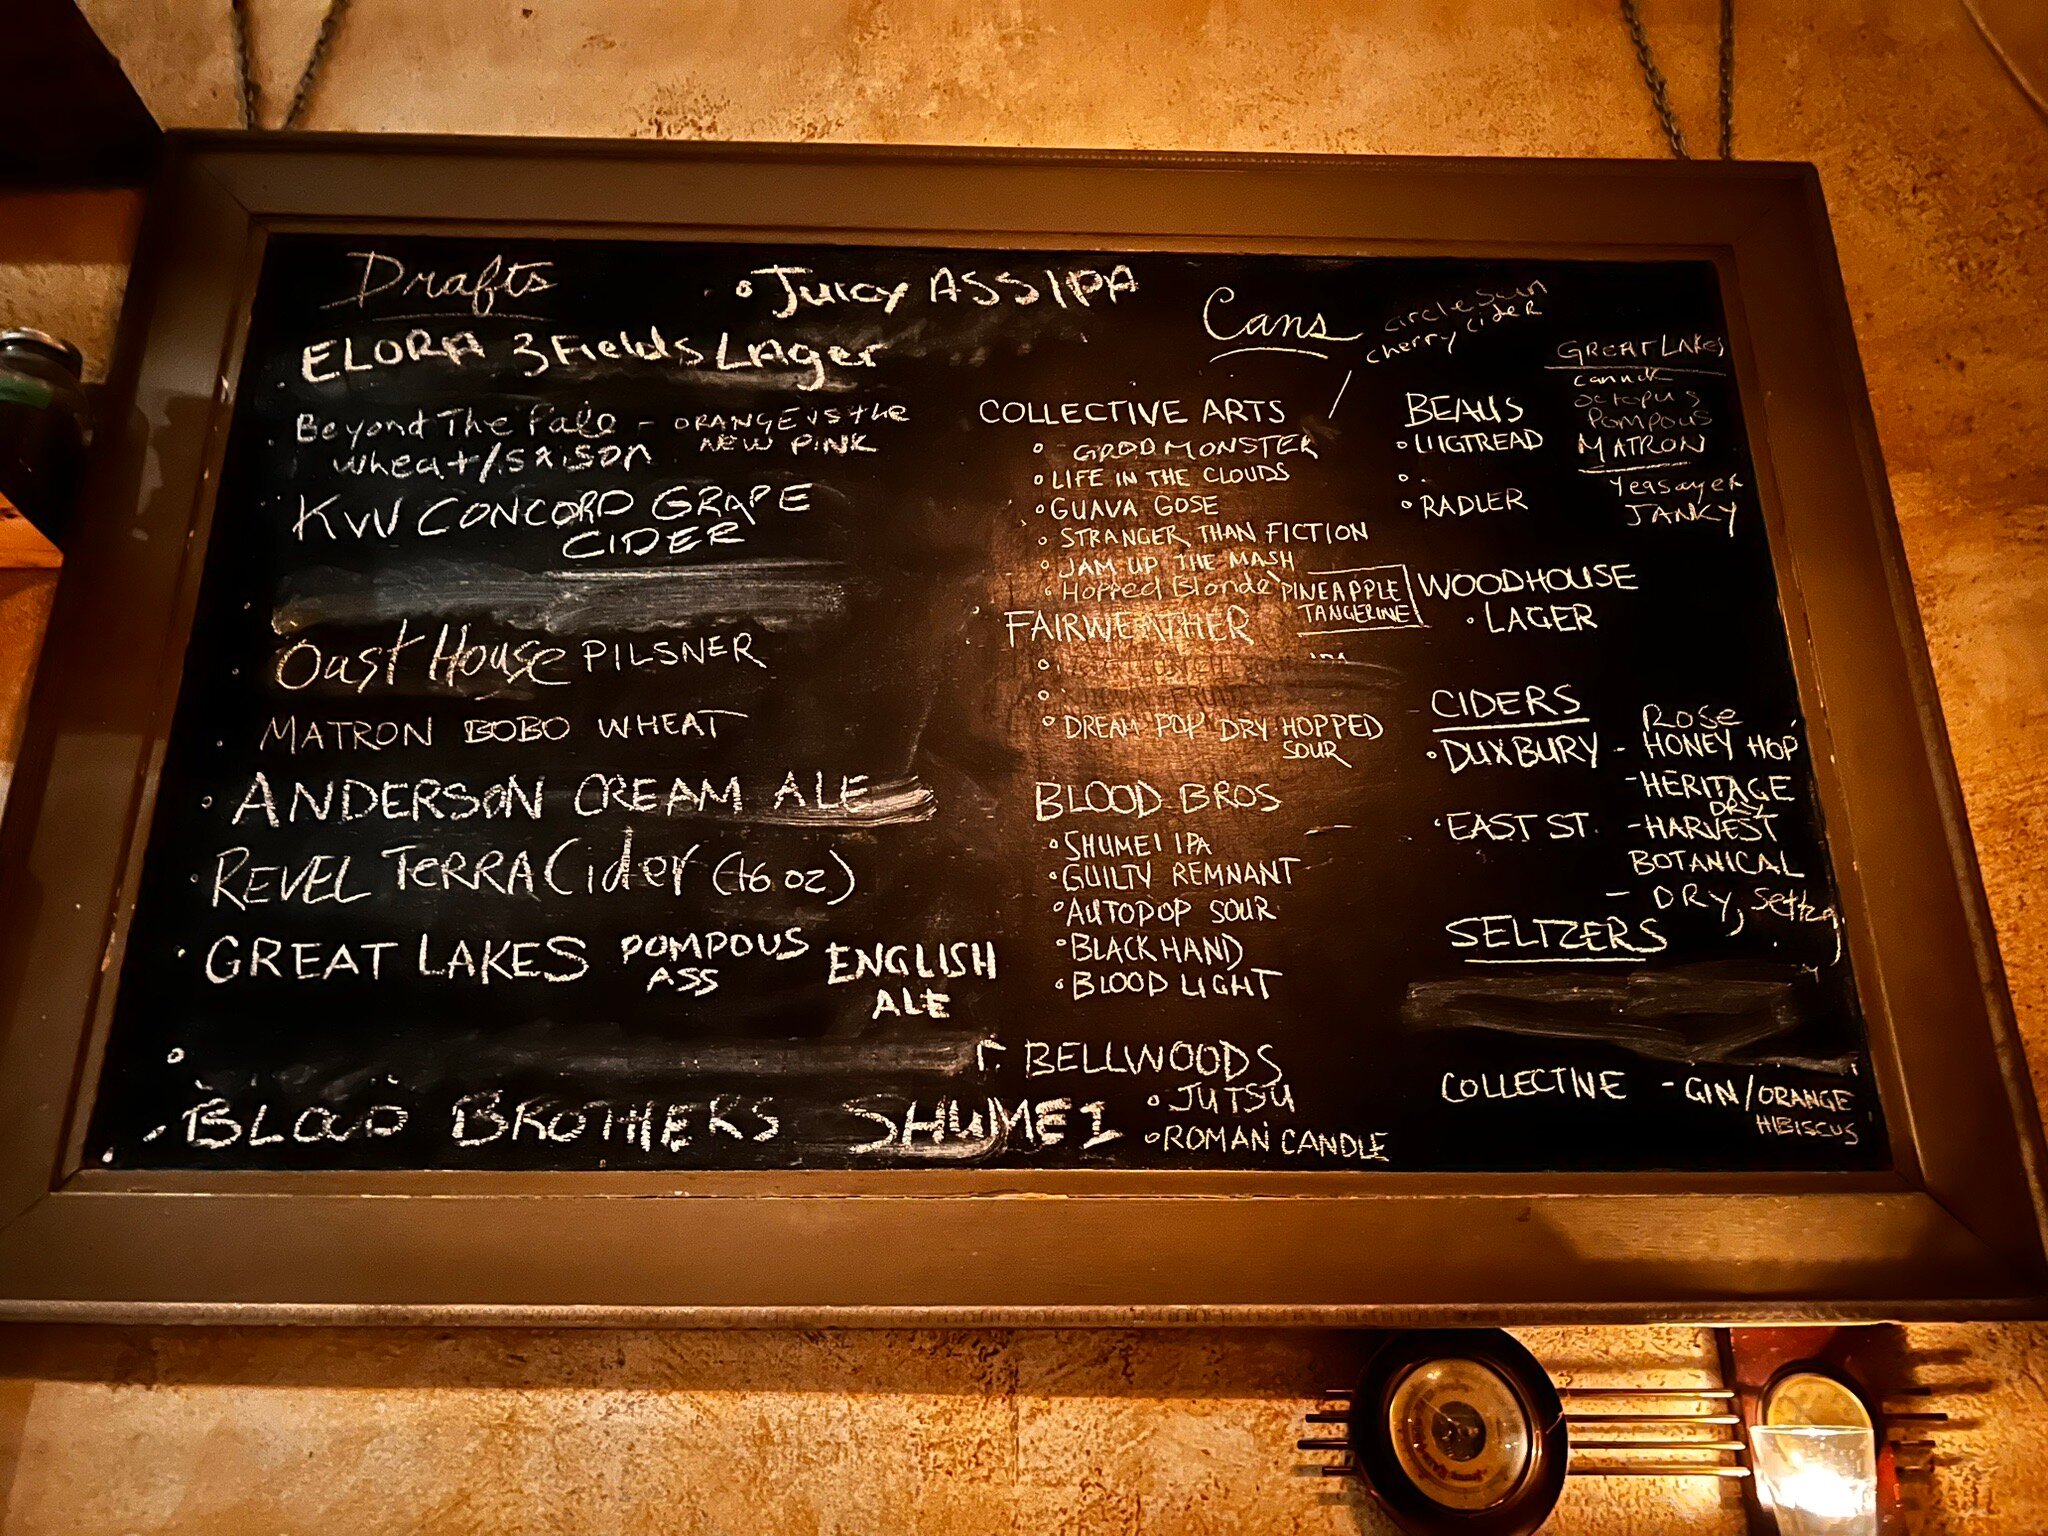 Drafts
• Juicy ASS IPA
ELORA 3 Fields LAger
Beyond The Pale - ORANGE is the
NEW PINK
wheat/saison
KW CONCORD GRAPE
CIDER
Oust House PILSNER
MATRON BOBO WHEAT
• ANDERSON CREAM ALE
• REVEL TERRA Cider (16 oz)
• GREAT LAKES POMPOUS
ASS
ENGLISH
ALE
• BLOOD BROTHERS SHUMEI
Cans
circle
cherry cider
COLLECTIVE ARTS
• GOOD MONSTER
• LIFE IN THE CLOUDS
• GUAVA GOSE
• STRANGER THAN FICTION
• JAM UP THE MASH
• Hopped Blonde PINEAPPLE
TANGERINE
FAIRWEATHER
• DREAM POP DRY HOPPED
SOUR
BLOOD BROS
• SHUMEI IPA
• GUILTY REMNANT
• AUTOPOP SOUR
• BLACK HAND
• BLOOD LIGHT
BELLWOODS
• JUTSU
• ROMAN CANDLE
BEAUS
• LUGTREAD
• RADLER
GREAT LAKES
canuck
octopus
POMPOUS
MATRON
Yeasayer
JANKY
WOODHOUSE
• LAGER
CIDERS
• DUXBURY - ROSE
HONEY HOP
- HERITAGE
DRY
• EAST ST. - HARVEST
BOTANICAL
- DRY,
SELTZERS
COLLECTIVE - GIN/ORANGE
HIBISCUS